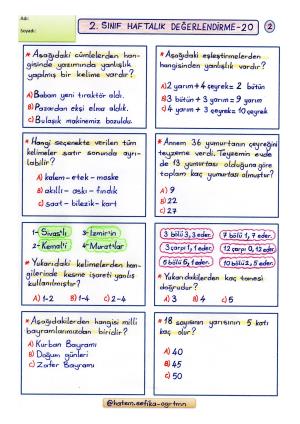 Adı:
Soyadı:
2. SINIF HAFTALIK DEĞERLENDİRME-20
2
* Aşağıdaki cümlelerden han-
gisinde yazımında yanlışlık
yapılmış bir kelime vardır?
A) Babam yeni tıraktör aldı.
B) Pazardan ekşi elma aldık.
C) Bulaşık makinemiz bozuldu.
* Aşağıdaki eşleştirmelerden
hangisinden yanlışlık vardır?
A) 2 yarım + 4 çeyrek = 2 bütün
B) 3 bütün + 3 yarım = 9 yarım
C) 3 yarım + 4 çeyrek = 10 çeyrek
* Hangi seçenekte verilen tüm
kelimeler satır sonunda ayrı-
labilir?
A) kalem - etek - maske
B) akıllı - askı - fındık
C) saat - bilezik - kart
* Annem 36 yumurtanın çeyreğini
teyzeme verdi. Teyzemin evde
de 13 yumurtası olduğuna göre
toplam kaç yumurtası olmuştur?
A) 9
B) 22
C) 27
1- Sivas'lı 3- İzmir'in
2- Kemal'i 4- Muratlar
* Yukarıdaki kelimelerden han-
gilerinde kesme işareti yanlış
kullanılmıştır?
A) 1-2 B) 1-4 C) 2-4
3 bölü 3, 3 eder. 7 bölü 1, 7 eder.
3 çarpı 1, 1 eder. 12 çarpı 0, 12 eder.
6 bölü 6, 1 eder. 10 bölü 2, 5 eder.
* Yukarıdakilerden kaç tanesi
doğrudur?
A) 3 B) 4 C) 5
* Aşağıdakilerden hangisi milli
bayramlarımızdan biridir?
A) Kurban Bayramı
B) Doğum günleri
C) Zafer Bayramı
* 18 sayısının yarısının 5 katı
kaç olur?
A) 40
B) 45
C) 50
@hatem.sefika-ogrtmn